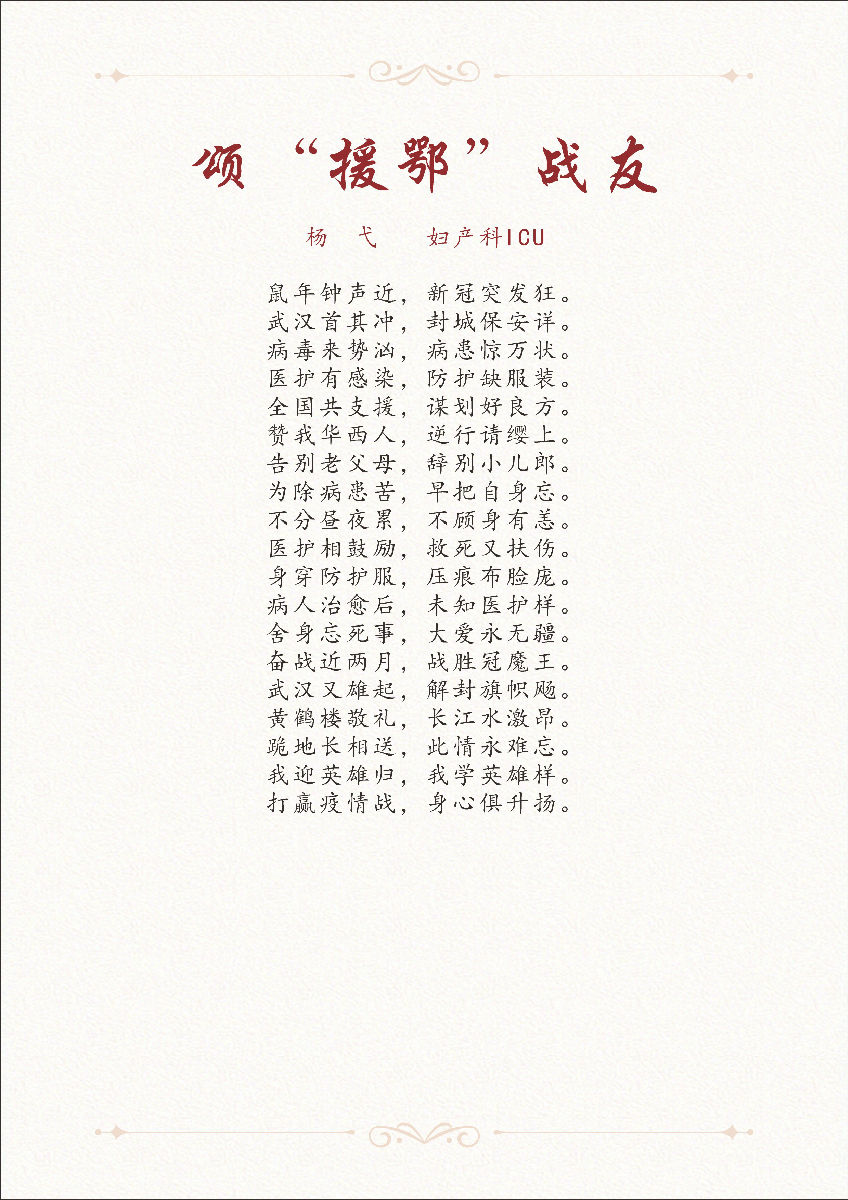 颂“援鄂”战友
杨 弋 妇产科ICU
鼠年钟声近，新冠突发狂。
武汉首其冲，封城保安详。
病毒来势汹，病患惊万状。
医护有感染，防护缺服装。
全国共支援，谋划好良方。
赞我华西人，逆行请缨上。
告别老父母，辞别小儿郎。
为除病患苦，早把自身忘。
不分昼夜累，不顾身有恙。
医护相鼓励，救死又扶伤。
身穿防护服，压痕布脸庞。
病人治愈后，未知医护样。
舍身忘死事，大爱永无疆。
奋战近两月，战胜冠魔王。
武汉又雄起，解封旗帜飏。
黄鹤楼敬礼，长江水激昂。
跪地长相送，此情永难忘。
我迎英雄归，我学英雄样。
打赢疫情战，身心俱升扬。